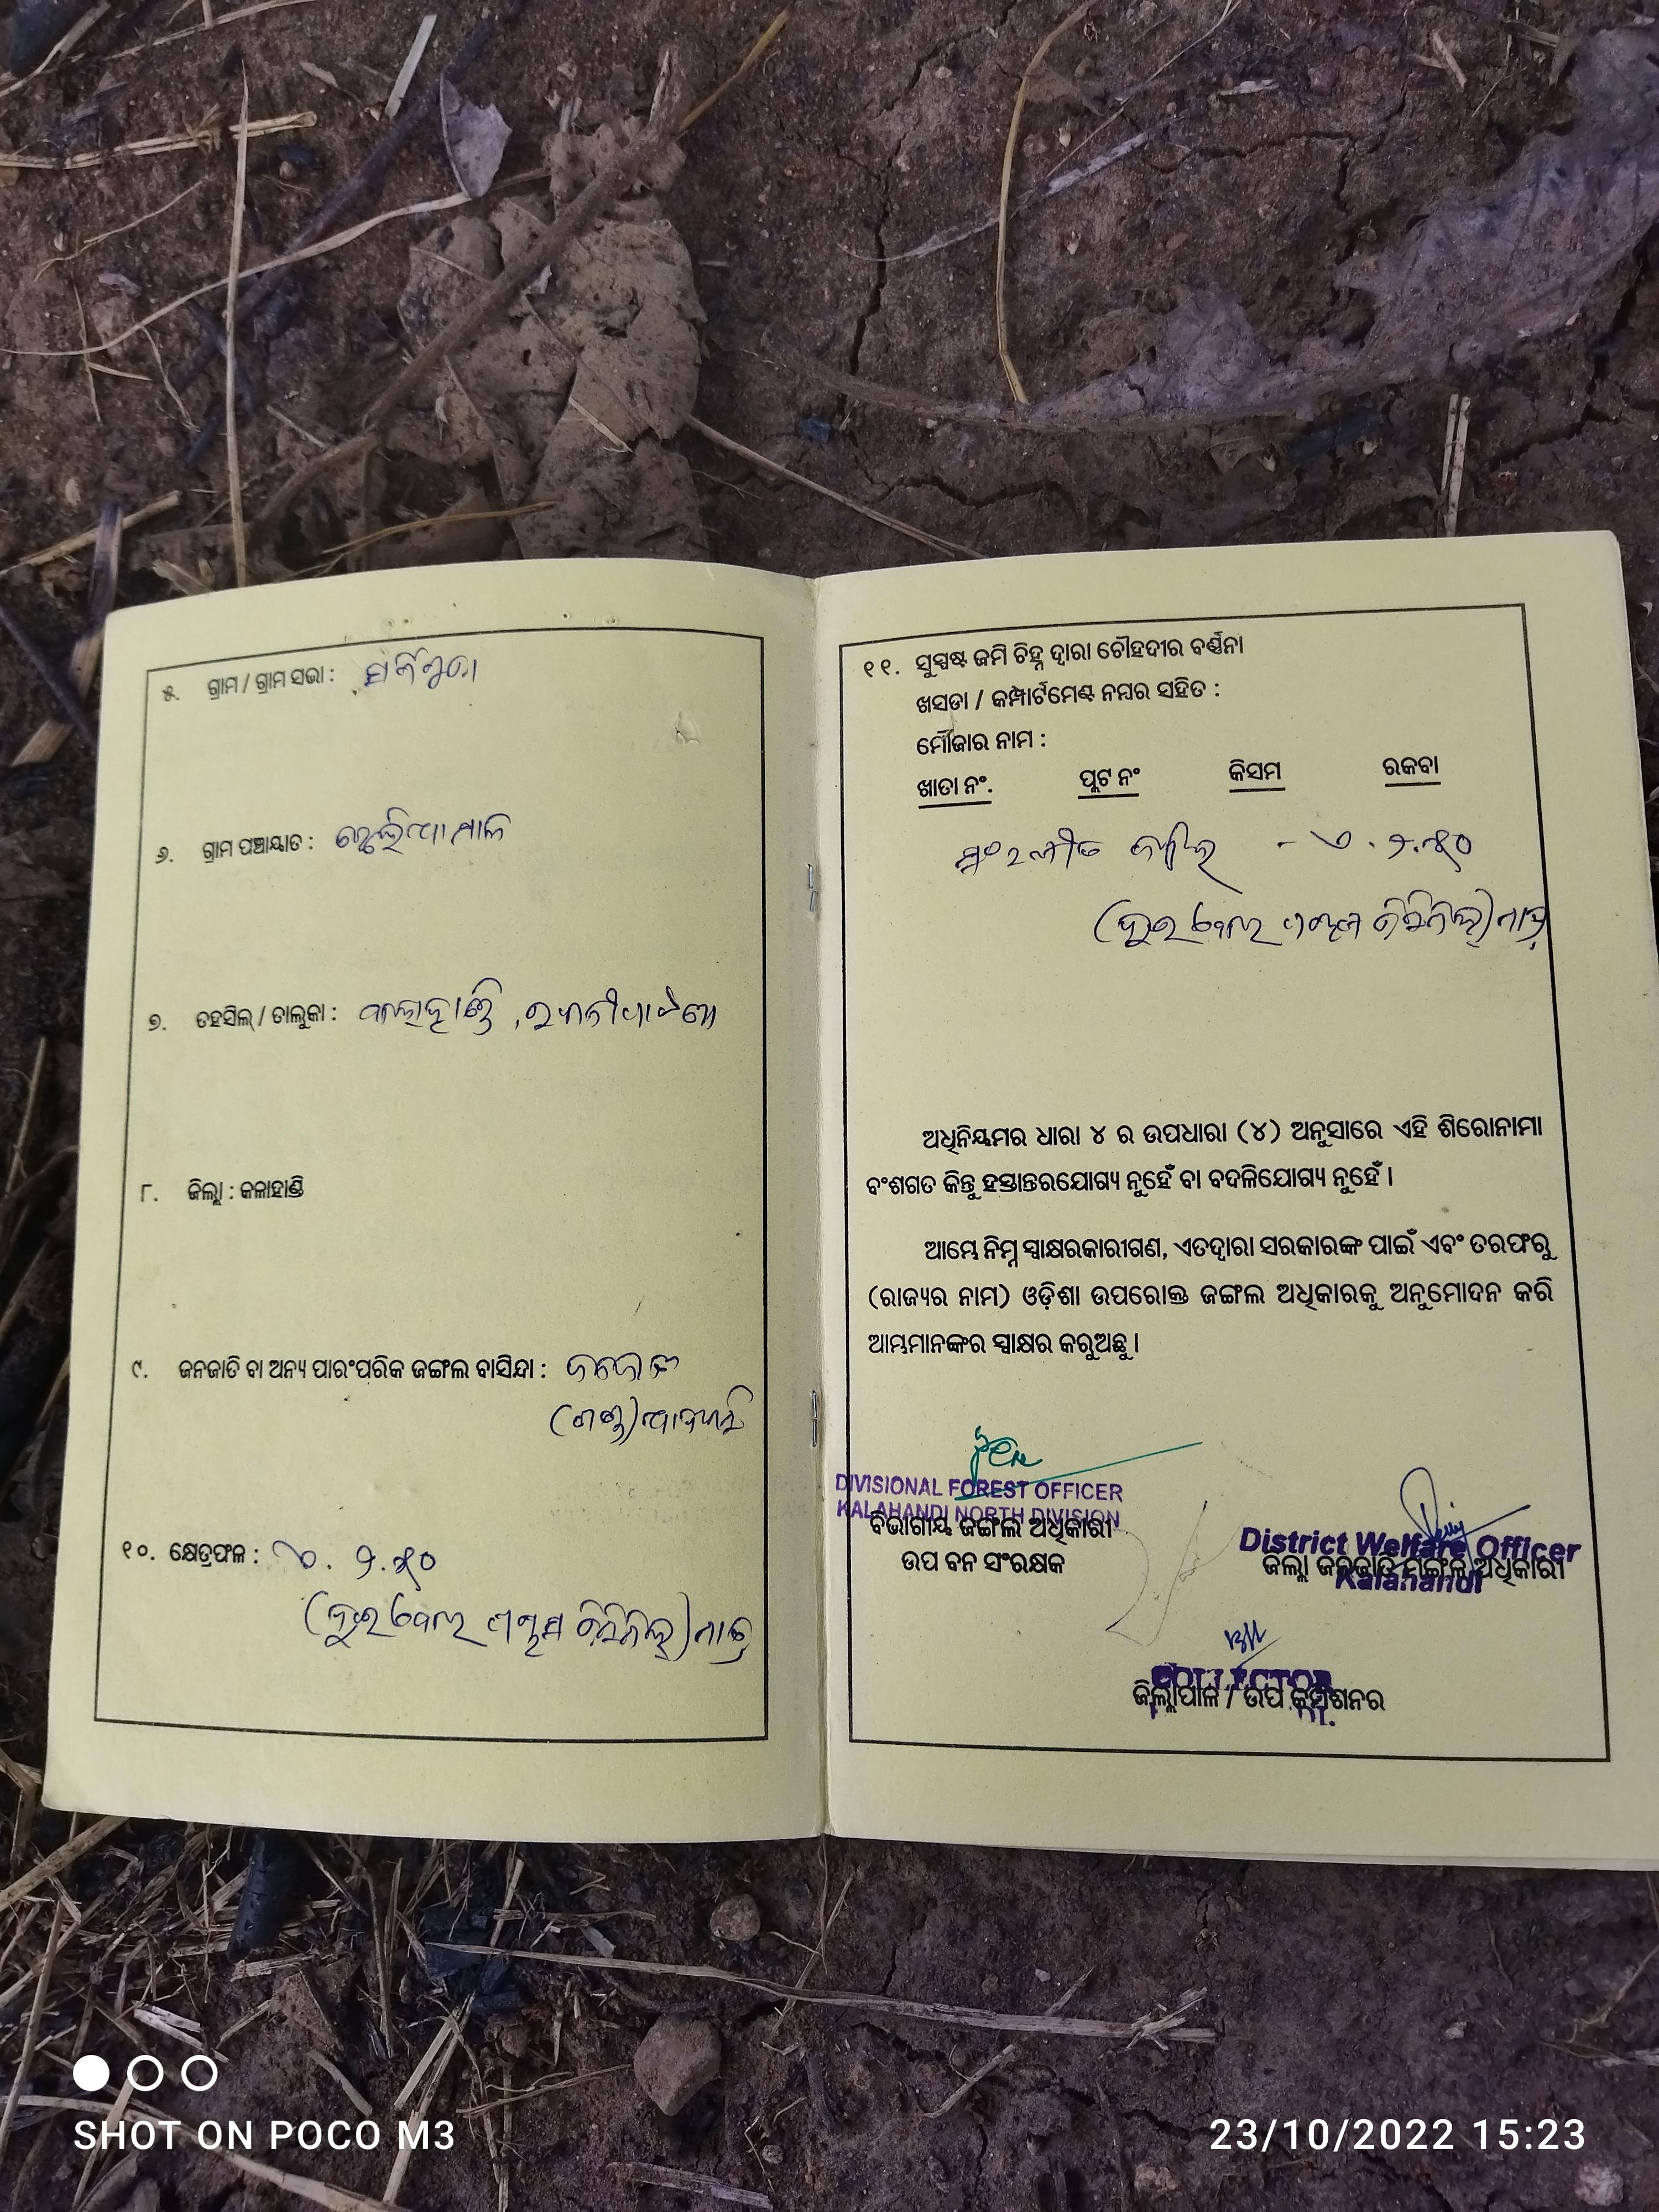 ୫. ଗ୍ରାମ / ଗ୍ରାମ ସଭା :
୬. ଗ୍ରାମ ପଞ୍ଚାୟାତ :
୭. ତହସିଲ୍ / ତାଲୁକା : କଳାହାଣ୍ଡି
୮. ଜିଲ୍ଲା : କଳାହାଣ୍ଡି
୯. ଜନଜାତି ବା ଅନ୍ୟ ପାରଂପରିକ ଜଙ୍ଗଲ ବାସିନ୍ଦା :
୧୦. କ୍ଷେତ୍ରଫଳ : ଏ. ୨.୫୦
(ଦୁଇ ଏକର ପଚାଶ ଡିସିମିଲ୍) ମାତ୍ର
୧୧. ସୁସ୍ପଷ୍ଟ ଜମି ଚିହ୍ନ ଦ୍ୱାରା ଚୌହଦୀର ବର୍ଣ୍ଣନା
ଖସଡା / କମ୍ପାର୍ଟମେଣ୍ଟ ନମ୍ବର ସହିତ :
ମୌଜାର ନାମ :
ଖାତା ନଂ. ପ୍ଲଟ ନଂ କିସମ ରକବା
- ଏ. ୨.୫୦
(ଦୁଇ ଏକର ପଚାଶ ଡିସିମିଲ୍) ମାତ୍ର
ଅଧିନିୟମର ଧାରା ୪ ର ଉପଧାରା (୪) ଅନୁସାରେ ଏହି ଶିରୋନାମା
ବଂଶଗତ କିନ୍ତୁ ହସ୍ତାନ୍ତରଯୋଗ୍ୟ ନୁହେଁ ବା ବଦଳିଯୋଗ୍ୟ ନୁହେଁ ।
ଆମ୍ଭେ ନିମ୍ନ ସ୍ୱାକ୍ଷରକାରୀଗଣ, ଏତଦ୍ୱାରା ସରକାରଙ୍କ ପାଇଁ ଏବଂ ତରଫରୁ
(ରାଜ୍ୟର ନାମ) ଓଡ଼ିଶା ଉପରୋକ୍ତ ଜଙ୍ଗଲ ଅଧିକାରକୁ ଅନୁମୋଦନ କରି
ଆମ୍ଭମାନଙ୍କର ସ୍ୱାକ୍ଷର କରୁଅଛୁ ।
DIVISIONAL FOREST OFFICER
KALAHANDI NORTH DIVISION
ବିଭାଗୀୟ ଜଙ୍ଗଲ ଅଧିକାରୀ
ଉପ ବନ ସଂରକ୍ଷକ
District Welfare Officer
ଜିଲ୍ଲା ଜନଜାତି ମଙ୍ଗଳ ଅଧିକାରୀ
Kalahandi
COLLECTOR
ଜିଲ୍ଲାପାଳ / ଉପ କମିଶନର
SHOT ON POCO M3
23/10/2022 15:23